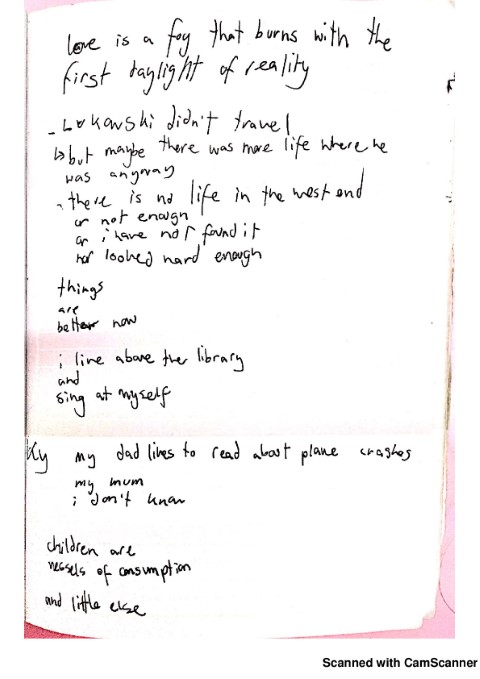 love is a fog that burns with the
first daylight of reality
- Lukowski didn't travel
↳ but maybe there was more life where he
was anyway
- there is no life in the west end
or not enough
or i have not found it
nor looked hard enough
things
are
better now
i live above the library
and
sing at myself
my dad likes to read about plane crashes
my mum
i don't know
children are
vessels of consumption
and little else
Scanned with CamScanner